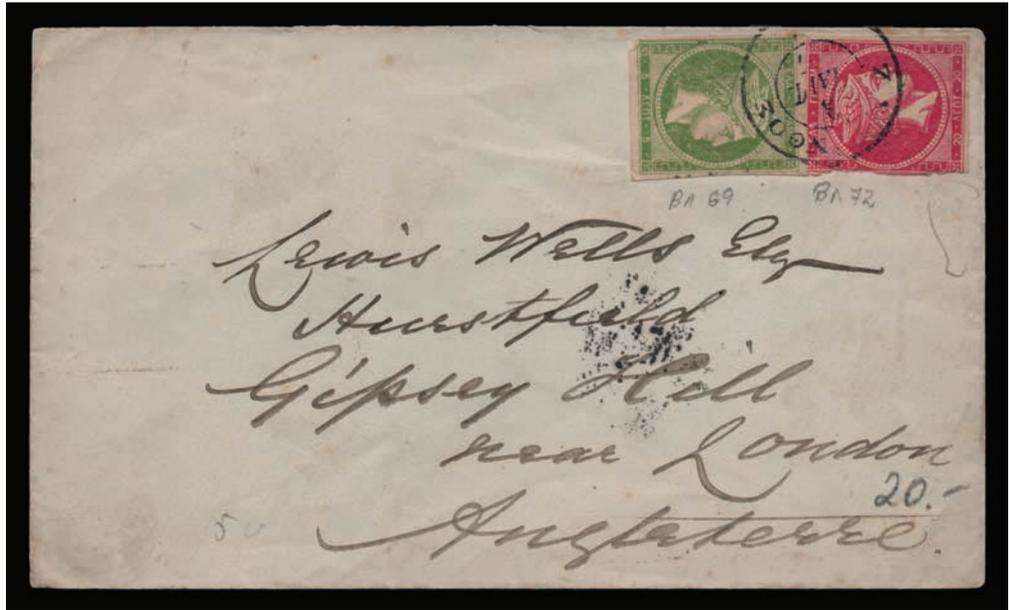 Βλ 69 Βλ 72
Lewis Wells Esq
Hurstfield
Gipsey Hill
near London
20.-
Angleterre.